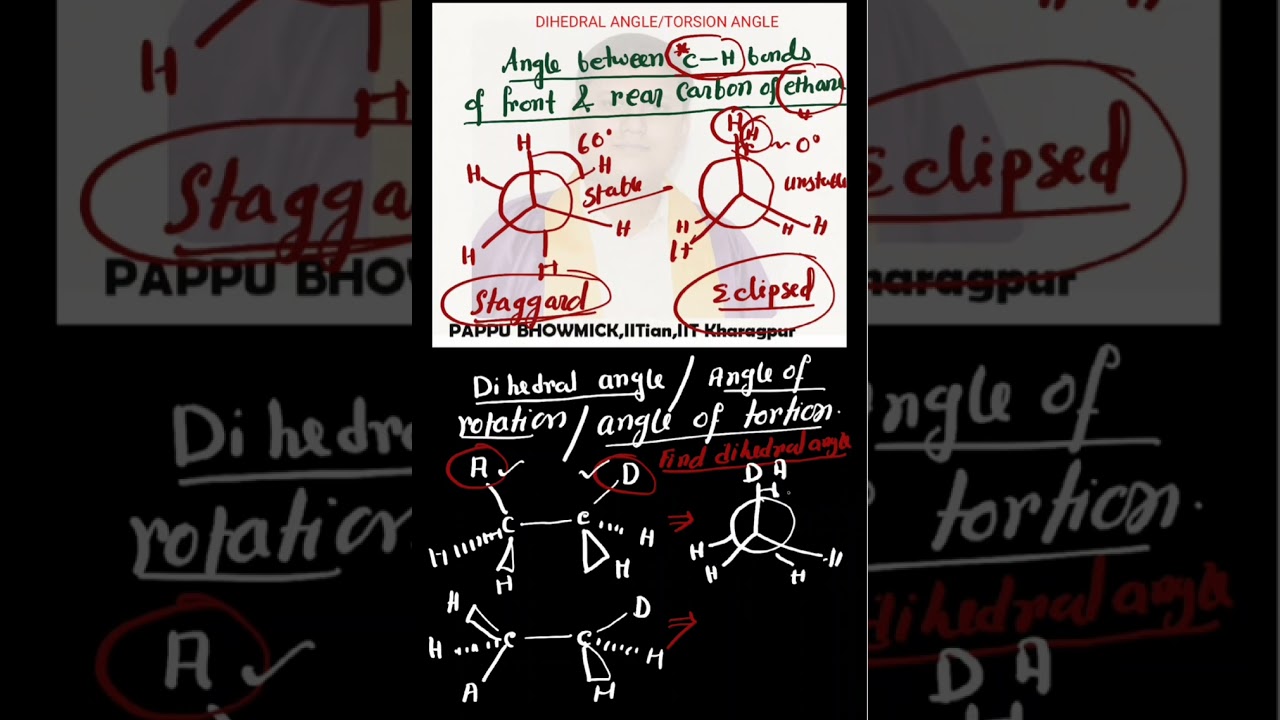 DIHEDRAL ANGLE/TORSION ANGLE
Angle between *C-H bonds
of front & rear carbon of ethane
H 60° H H 0°
H H
Stable unstable
H H H H H
H H H
Staggard Eclipsed
PAPPU BHOWMICK,IITian,IIT Kharagpur
Dihedral angle / Angle of
rotation / angle of tortion.
Find dihedral angle
A D D A
H
C C
H H H H H
H H H
H D
C C
H H
A H